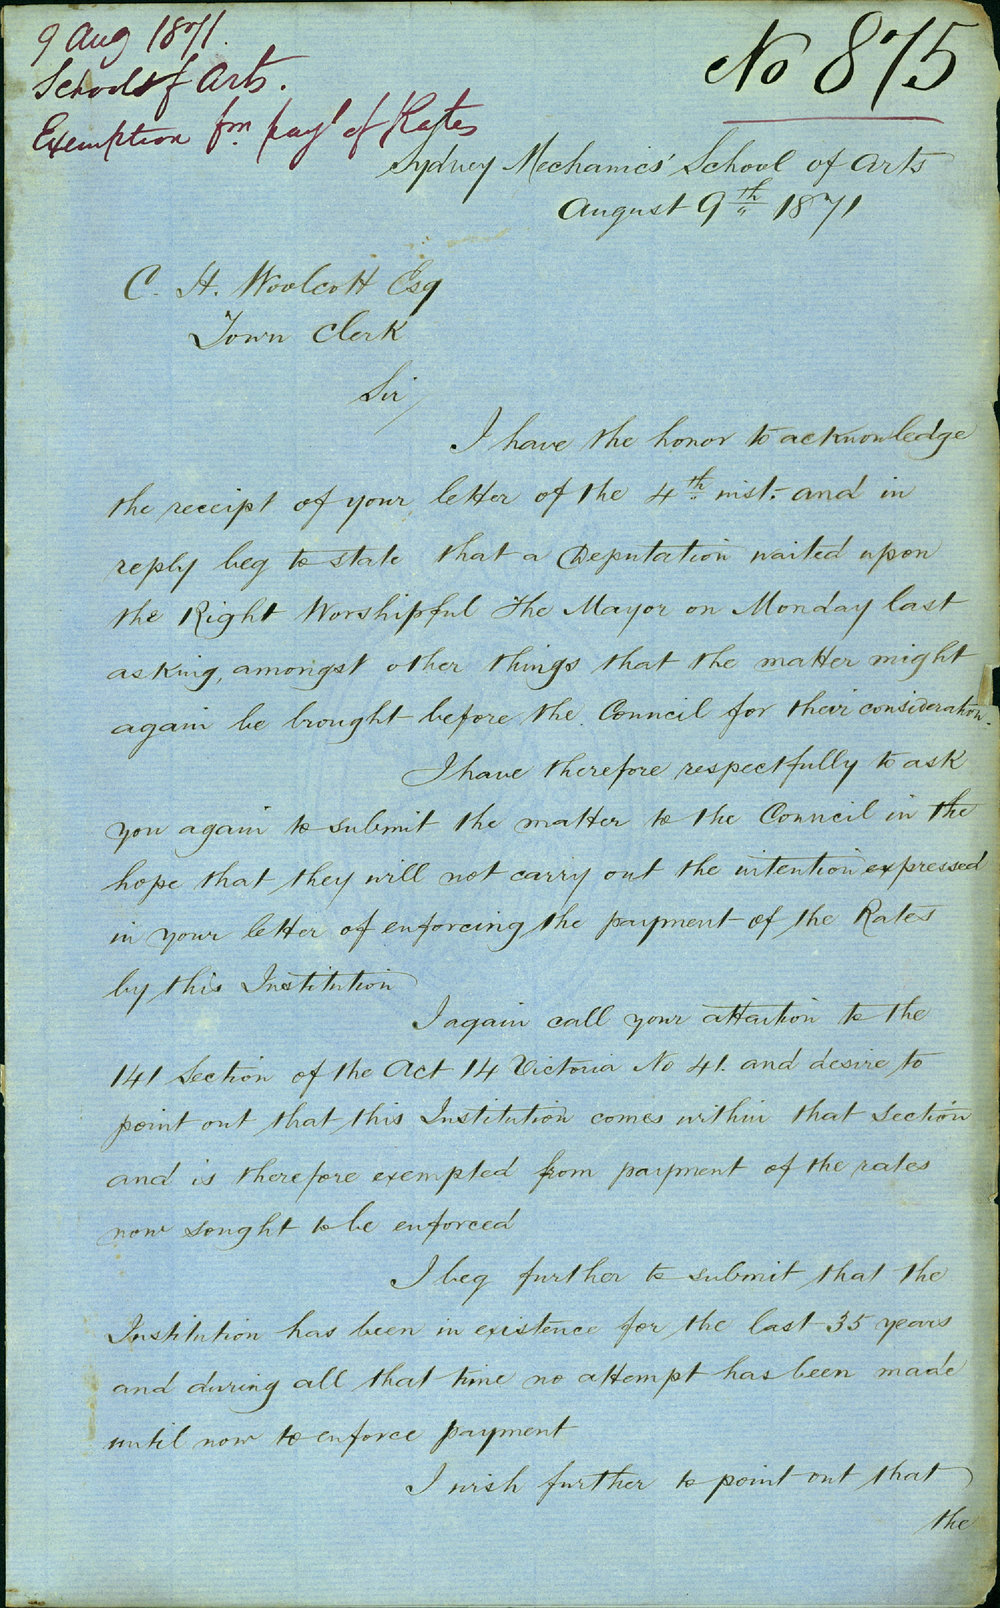 9 Aug 1871.
School of Arts.
Exemption fm. payt of Rates
No 875
Sydney Mechanics' School of Arts
August 9th 1871
C. H. Woolcott Esq
Town Clerk
Sir,
I have the honor to acknowledge
the receipt of your letter of the 4th inst. and in
reply beg to state that a Deputation waited upon
the Right Worshipful The Mayor on Monday last
asking, amongst other things that the matter might
again be brought before the Council for their consideration.
I have therefore respectfully to ask
you again to submit the matter to the Council in the
hope that they will not carry out the intention expressed
in your letter of enforcing the payment of the Rates
by this Institution
I again call your attention to the
141 Section of the Act 14 Victoria No 41. and desire to
point out that this Institution comes within that section
and is therefore exempted from payment of the rates
now sought to be enforced
I beg further to submit that the
Institution has been in existence for the last 35 years
and during all that time no attempt has been made
until now to enforce payment
I wish further to point out that
the